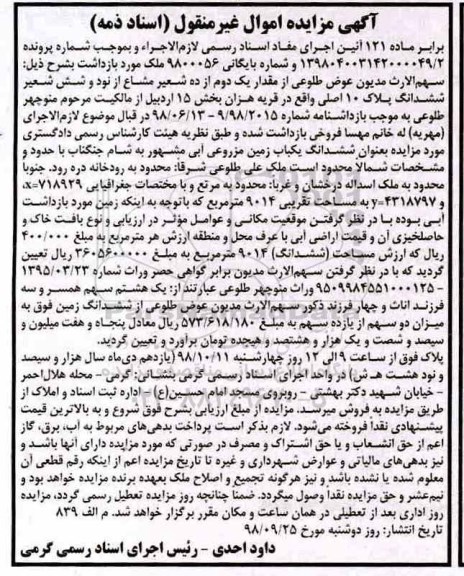 آگهی مزایده اموال غیرمنقول (اسناد ذمه)
برابر ماده ۱۲۱ آئین اجرای مفاد اسناد رسمی لازم‌الاجراء و بموجب شماره پرونده
۱۳۹۸۰۴۰۰۳۱۴۲۰۰۰۰۴۹/۲ و شماره بایگانی ۹۸۰۰۰۵۶ ملک مورد بازداشت بشرح ذیل:
سهم‌الارث مدیون عوض طلوعی از مقدار یک دوم از ده شعیر مشاع از نود و شش شعیر
ششدانگ پلاک ۱۰ اصلی واقع در قریه هزان بخش ۱۵ اردبیل از مالکیت مرحوم منوچهر
طلوعی به موجب بازداشتنامه شماره ۹/۹۸/۲۰۱۵ – ۹۸/۰۶/۱۳ در قبال موضوع لازم‌الاجرای
(مهریه) له خانم مهسا فروخی بازداشت شده و طبق نظریه هیئت کارشناس رسمی دادگستری
مورد مزایده بعنوان ششدانگ یکباب زمین مزروعی آبی مشهور به شام جنگتاب با حدود و
مشخصات شمالا محدود است ملک علی طلوعی شرقاً: محدود به رودخانه دره رود. جنوبا
محدود به ملک اسداله درخشان و غربا: محدود به مرتع و با مختصات جغرافیایی x=۷۱۸۹۲۹،
y=۴۳۱۸۷۹۷ و به مساحت تقریبی ۹۰۱۴ مترمربع که باتوجه به اینکه زمین مورد بازداشت
آبی بوده با در نظر گرفتن موقعیت مکانی و عوامل مؤثر در ارزیابی و نوع بافت خاک و
حاصلخیزی آن و قیمت اراضی آبی با عرف محل و منطقه ارزش هر مترمربع به مبلغ ۴۰۰/۰۰۰
ریال که ارزش مساحت (ششدانگ) ۹۰۱۴ مترمربع به مبلغ ۳۶۰۵۶۰۰۰۰۰ ریال تعیین
گردید که با در نظر گرفتن سهم‌الارث مدیون برابر گواهی حصر وراث شماره ۱۳۹۵/۰۳/۲۳
– ۹۵۰۹۹۸۴۵۵۱۰۰۰۱۲۵ وراث منوچهر طلوعی عبارتند از: یک هشتم سهم همسر و سه
فرزند اناث و چهار فرزند ذکور – سهم‌الارث مدیون عوض طلوعی از ششدانگ زمین فوق به
میزان دو سهم از یازده سهم به مبلغ ۵۷۳/۶۱۸/۱۸۰ ریال معادل پنجاه و هفت میلیون و
سیصد و شصت و یک هزار و هشتصد و هیجده تومان برآورد و تعیین گردید.
پلاک فوق از ساعت ۹ الی ۱۲ روز چهارشنبه ۹۸/۱۰/۱۱ (یازدهم دی‌ماه سال هزار و سیصد
و نود هشت هـ ش) در واحد اجرای اسناد رسمی گرمی بنشانی: گرمی – محله هلال‌احمر
– خیابان شهید دکتر بهشتی – روبروی مسجد امام حسین(ع) – اداره ثبت اسناد و املاک از
طریق مزایده به فروش میرسد. مزایده از مبلغ ارزیابی بشرح فوق شروع و به بالاترین قیمت
پیشنهادی نقداً فروخته می‌شود. لازم بذکر است پرداخت بدهی‌های مربوط به آب، برق، گاز
اعم از حق انشعاب و یا حق اشتراک و مصرف در صورتی که مورد مزایده دارای آنها باشد و
نیز بدهی‌های مالیاتی و عوارض شهرداری و غیره تا تاریخ مزایده اعم از اینکه رقم قطعی آن
معلوم شده یا نشده باشد و نیز هرگونه تجمیع و اصلاح ملک بعهده برنده مزایده خواهد بود و
نیم‌عشر و حق مزایده نقدا وصول میگردد. ضمنا چنانچه روز مزایده تعطیل رسمی گردد، مزایده
روز اداری بعد از تعطیلی در همان ساعت و مکان مقرر برگزار خواهد شد. م الف ۸۳۹
تاریخ انتشار: روز دوشنبه مورخ ۹۸/۰۹/۲۵
داود احدی – رئیس اجرای اسناد رسمی گرمی